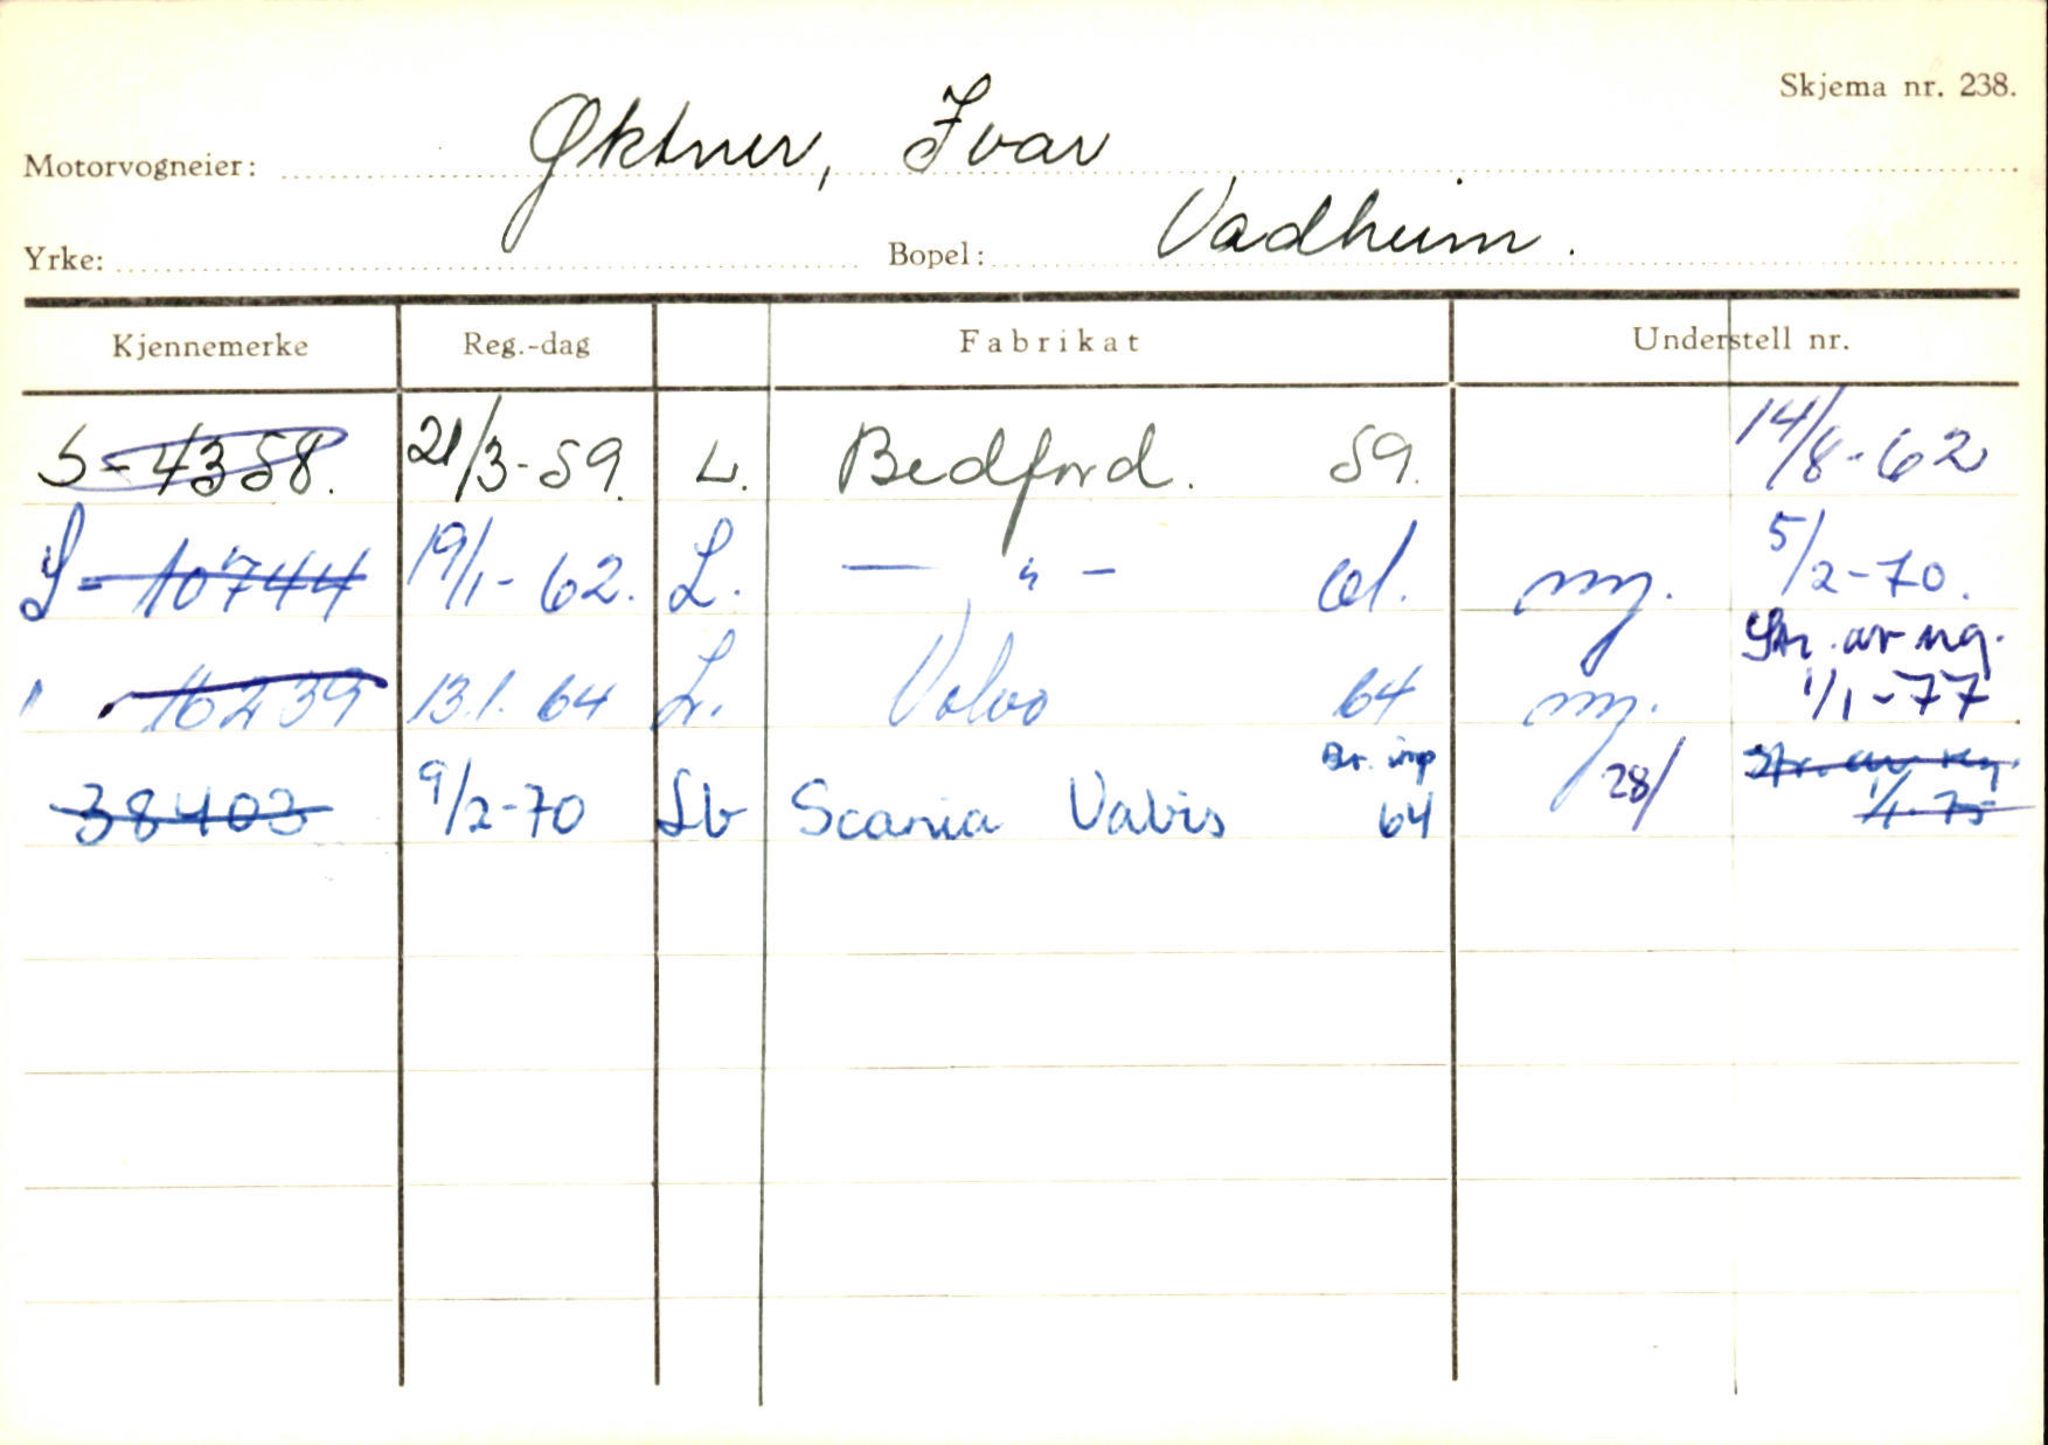 Skjema nr. 238.
Motorvogneier: Øktner, Ivar
Yrke: Bopel: Vadheim.
Kjennemerke Reg.-dag Fabrikat Understell nr.
S-4358. 21/3-59. L. Bedford. 59. 14/8-62
S-10744 19/1-62. L. — " — ny. 5/2-70.
Str. av reg.
" 16239 13.1.64 L. Volvo 64 ny. 1/1-77
Br. imp Str. av reg.
38403 9/2-70 Lb Scania Vabis 64 28/ 1/1-75